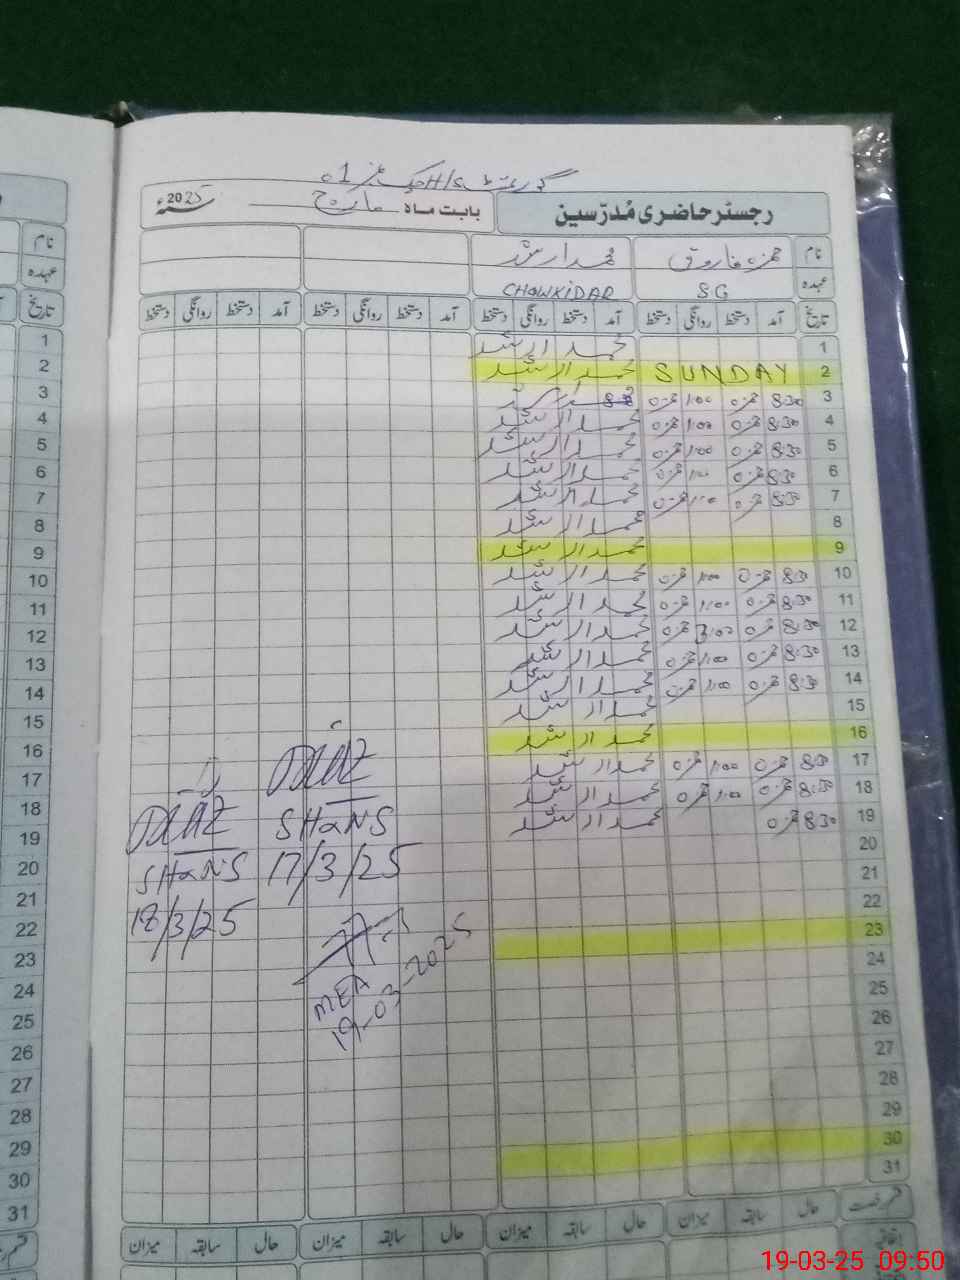 گورنمنٹ H/S
رجسٹر حاضری مُدرّسین
بابت ماہ مارچ 2025
نام حمزہ فاروق محمد ارشد
عہدہ SG CHOWKIDAR
تاریخ آمد دستخط روانگی دستخط آمد دستخط روانگی دستخط آمد دستخط روانگی دستخط آمد دستخط روانگی دستخط
1 محمد ارشد
2 SUNDAY محمد ارشد
3 8:30 حمزہ 1:00 حمزہ
4 8:30 حمزہ 1:00 حمزہ محمد ارشد
5 8:30 حمزہ 1:00 حمزہ محمد ارشد
6 8:30 حمزہ 1:00 حمزہ محمد ارشد
7 8:30 حمزہ 1:00 حمزہ محمد ارشد
8 محمد ارشد
9 محمد ارشد
10 8:30 حمزہ 1:00 حمزہ محمد ارشد
11 8:30 حمزہ 1:00 حمزہ محمد ارشد
12 8:30 حمزہ 1:00 حمزہ محمد ارشد
13 8:30 حمزہ 1:00 حمزہ محمد ارشد
14 8:30 حمزہ 1:00 حمزہ محمد ارشد
15 محمد ارشد
16 محمد ارشد
17 8:30 حمزہ 1:00 حمزہ محمد ارشد
18 8:30 حمزہ 1:00 حمزہ محمد ارشد
19 8:30 حمزہ محمد ارشد
20
21
22
23
24
25
26
27
28
29
30
31
SHaNS
17/3/25
SHaNS
18/3/25
MEA
19-03-2025
حال سابقہ میزان حال سابقہ میزان حال سابقہ میزان حال سابقہ میزان
نام
عہدہ
تاریخ
1
2
3
4
5
6
7
8
9
10
11
12
13
14
15
16
17
18
19
20
21
22
23
24
25
26
27
28
29
30
31
19-03-25 09:50